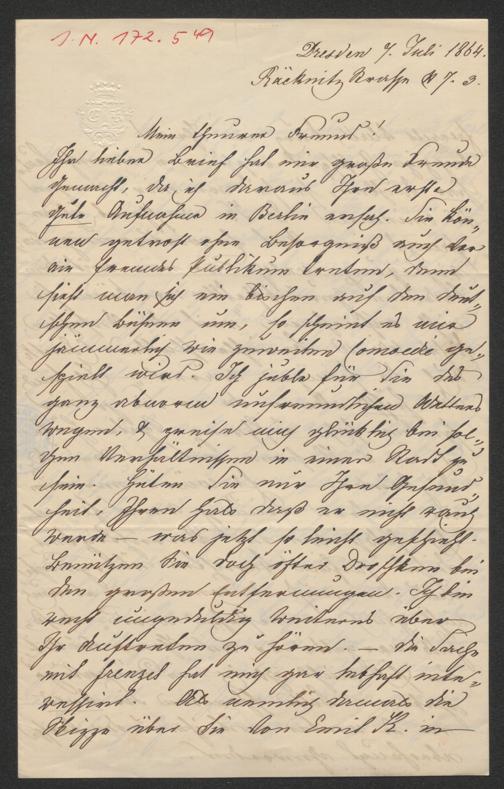 I. N. 172.549
Dresden 7. Juli 1864.
Räcknitz Strasse № 7. 3.
Mein theurer Freund!
Ihr lieber Brief hat mir große Freude
gemacht, da ich daraus Ihre erste
gute Aufnahme in Berlin ersah. Sie kön„
nen getrost ohne Besorgniß auch vor
ein fremdes Publikum treten, denn
sieht man sich ein bischen auf den deut„
schen Bühnen um, so scheint es mir
jämmerlich wie zuweilen Comoedie ge„
spielt wird. Ich juble für Sie des
ganz abnormen unfreundlichen Wetters
wegen, & preise mich glücklich bei sol„
chen Verhältnissen in einer Stadt zu
sein. Hüten Sie nur Ihre Gesund„
heit, Ihren Hals daß er nicht rauh
werde — was jetzt so leicht geschieht.
Benützen Sie doch öfter Droschken bei
den großen Entfernungen. Ich bin
recht ungeduldig weiteres über
Ihr Auftreten zu hören. — Die Sache
mit Frenzel hat mich gar lebhaft inte„
ressirt. Als nemlich damals die
Skizze über Sie von Emil K. in